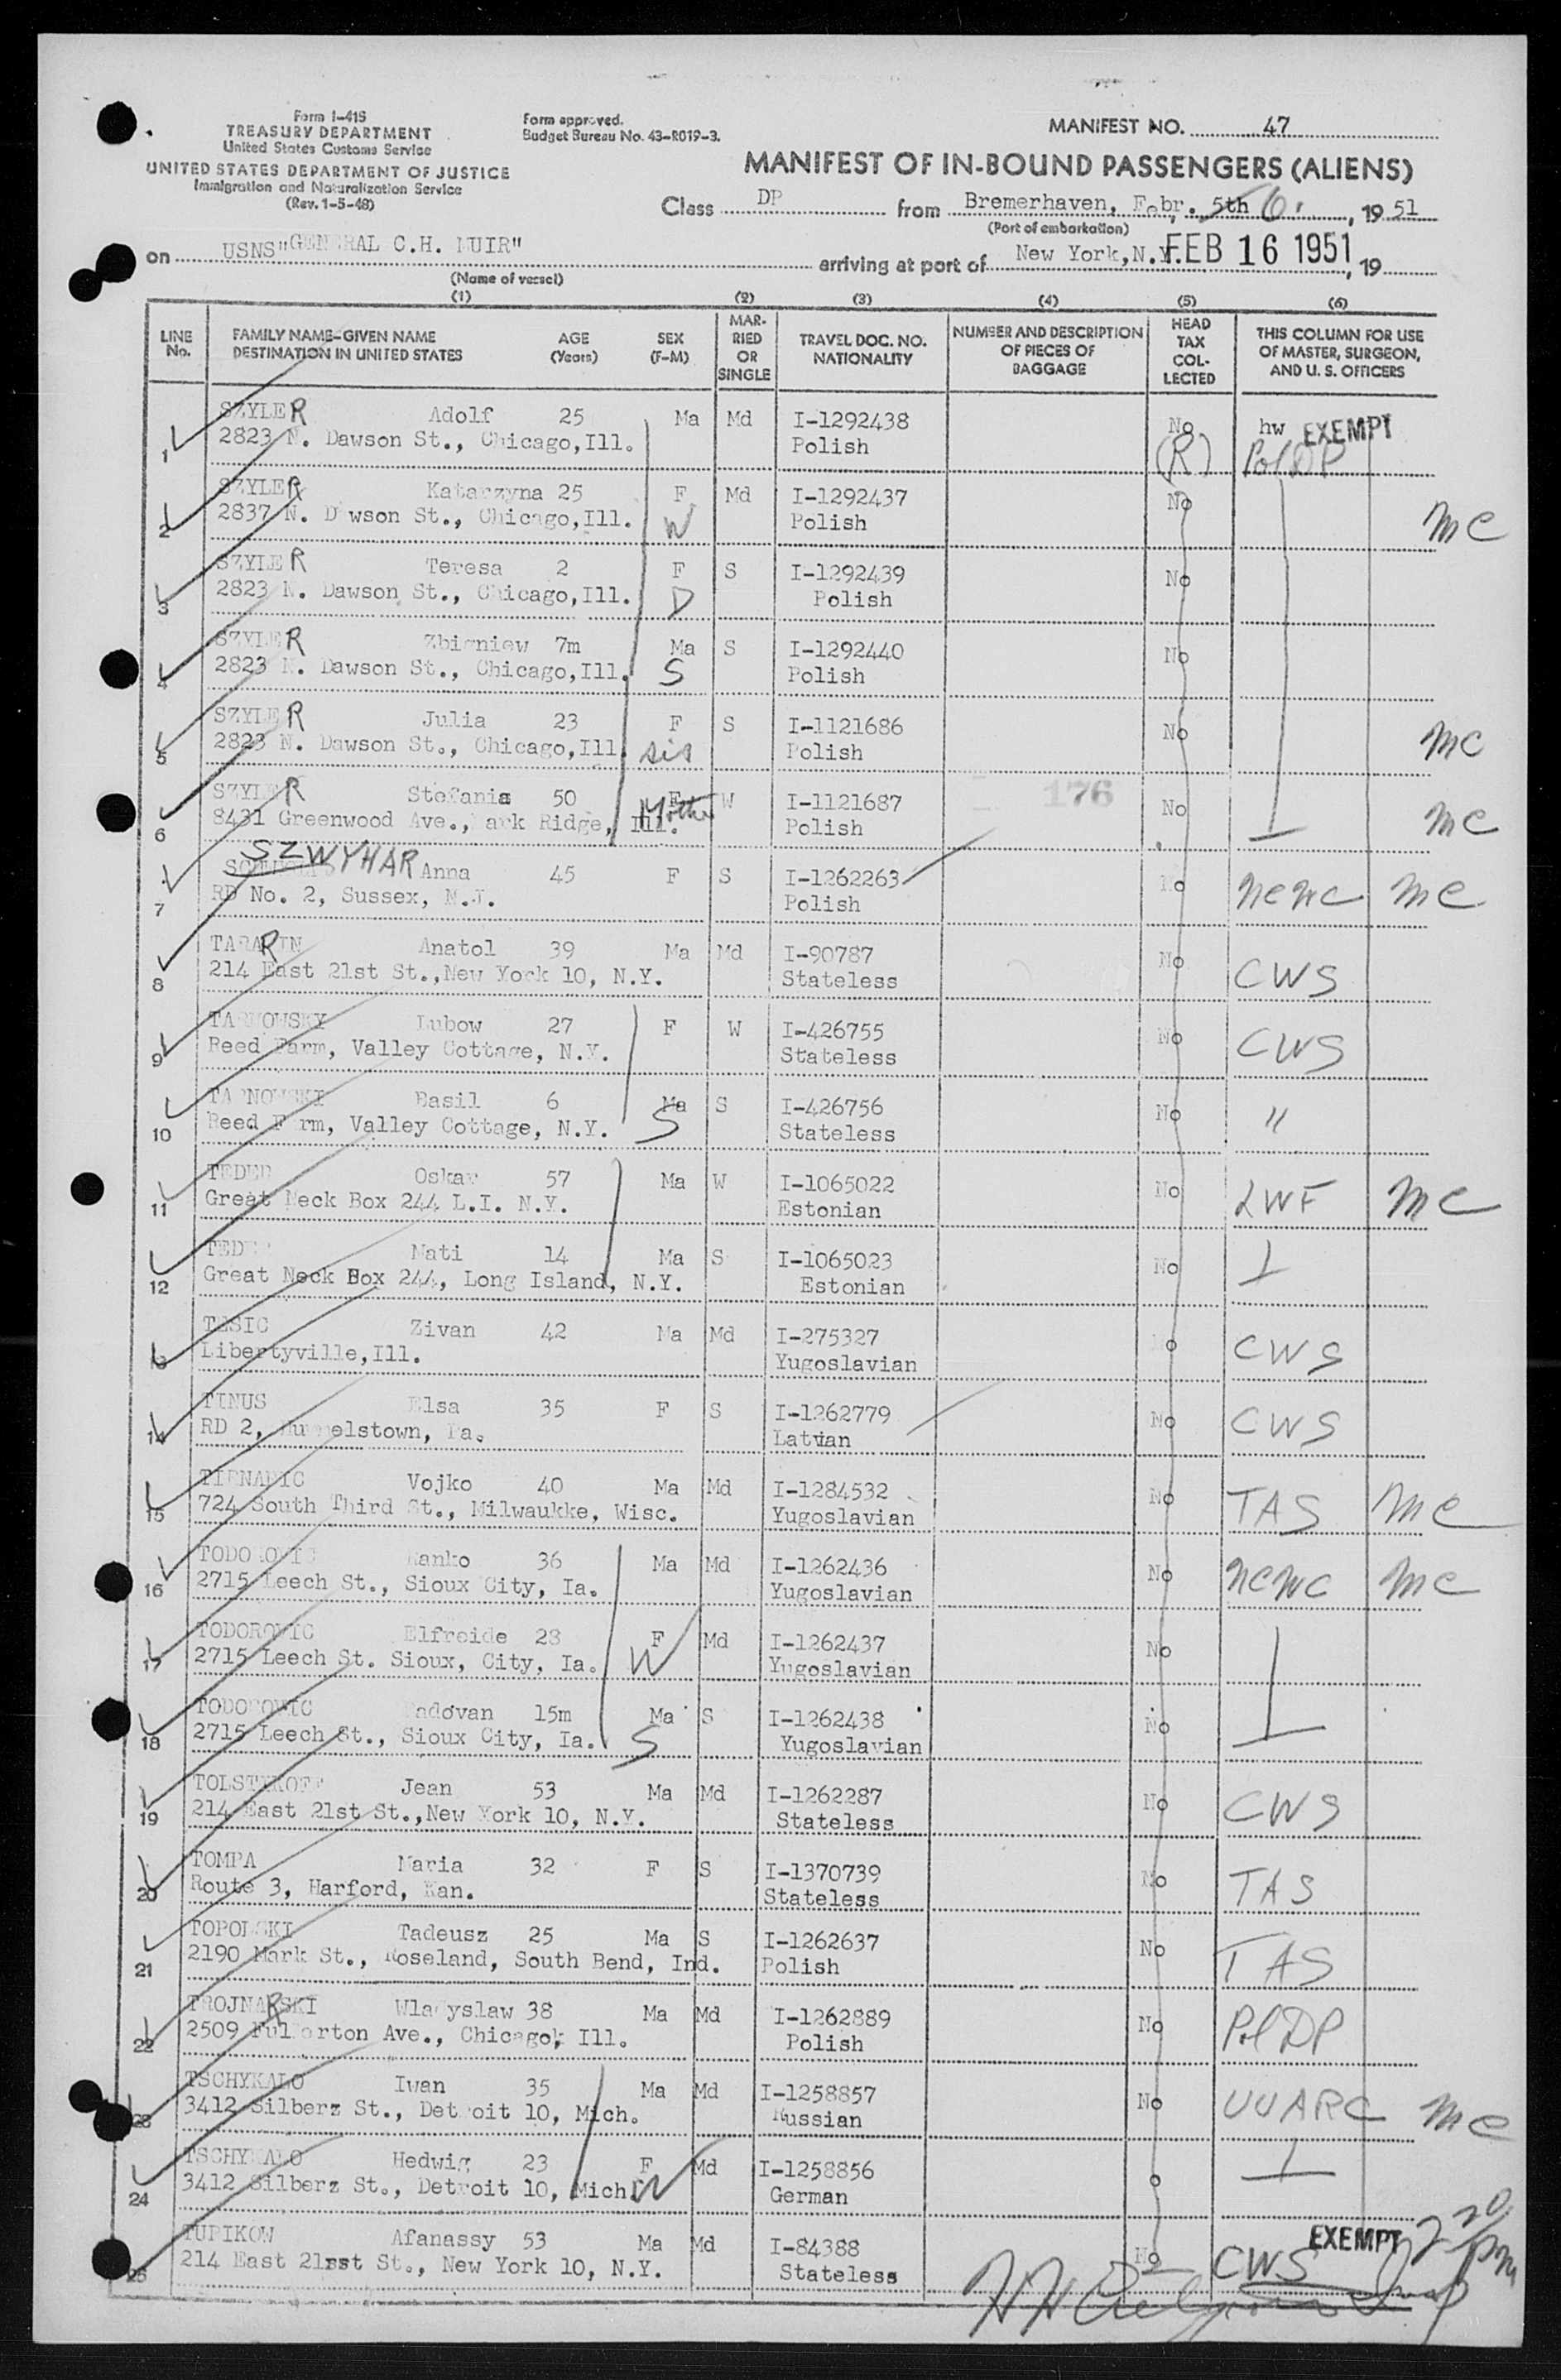 Form I-415
TREASURY DEPARTMENT
United States Customs Service
UNITED STATES DEPARTMENT OF JUSTICE
Immigration and Naturalization Service
(Rev. 1-5-48)
Form approved.
Budget Bureau No. 43-R019-3.
MANIFEST NO. 47
MANIFEST OF IN-BOUND PASSENGERS (ALIENS)
Class DP from Bremerhaven, Febr. 5th 6. , 19 51
(Port of embarkation)
on USNS "GENERAL C.H. MUIR" arriving at port of New York, N.Y. FEB 16 1951, 19
(Name of vessel)
(1) (2) (3) (4) (5) (6)
LINE No. FAMILY NAME-GIVEN NAME DESTINATION IN UNITED STATES AGE (Years) SEX (F-M) MARRIED OR SINGLE TRAVEL DOC. NO. NATIONALITY NUMBER AND DESCRIPTION OF PIECES OF BAGGAGE HEAD TAX COLLECTED THIS COLUMN FOR USE OF MASTER, SURGEON, AND U. S. OFFICERS
1 SZYLER Adolf 25 Ma Md I-1292438 No hw EXEMPT
2823 N. Dawson St., Chicago,Ill. Polish (R) Pol DP
2 SZYLER Katarzyna 25 F Md I-1292437 No
2837 N. D wson St., Chicago,Ill. W Polish mc
3 SZYLER Teresa 2 F S I-1292439 No
2823 N. Dawson St., Chicago,Ill. D Polish
4 SZYLER Zbigniew 7m Ma S I-1292440 No
2823 N. Dawson St., Chicago,Ill. S Polish
5 SZYLER Julia 23 F S I-1121686 No
2823 N. Dawson St., Chicago,Ill. sis Polish mc
6 SZYLER Stefania 50 F Mother W I-1121687 176 No
8431 Greenwood Ave., ark Ridge, Ill. Polish mc
SZWYHAR
7 Anna 45 F S I-1262263 No
RD No. 2, Sussex, N.J. Polish ncwc mc
8 TARARIN Anatol 39 Ma Md I-90787 No
214 East 21st St.,New York 10, N.Y. Stateless CWS
9 TARNOWSKY Lubow 27 F W I-426755 No
Reed Farm, Valley Cottage, N.Y. Stateless CWS
10 TARNOWSKI Basil 6 Ma S I-426756 No
Reed F rm, Valley Cottage, N.Y. S Stateless "
11 TEDER Oskar 57 Ma W I-1065022 No
Great Neck Box 244 L.I. N.Y. Estonian LWF mc
12 TEDER Mati 14 Ma S I-1065023 No
Great Neck Box 244, Long Island, N.Y. Estonian
13 TESIC Zivan 42 Ma Md I-275327 No
Libertyville,Ill. Yugoslavian CWS
14 TINUS Elsa 35 F S I-1262779 No
RD 2, Hummelstown, Pa. Latvian CWS
15 TIRNANIC Vojko 40 Ma Md I-1284532 No
724 South Third St., Milwaukke, Wisc. Yugoslavian TAS mc
16 TODOROVIC Ranko 36 Ma Md I-1262436 No
2715 Leech St., Sioux City, Ia. Yugoslavian ncwc mc
17 TODOROVIC Elfreide 28 F Md I-1262437 No
2715 Leech St. Sioux, City, Ia. W Yugoslavian
18 TODOROVIC Radovan 15m Ma S I-1262438 No
2715 Leech St., Sioux City, Ia. S Yugoslavian
19 TOLSTIKOFF Jean 53 Ma Md I-1262287 No
214 East 21st St.,New York 10, N.Y. Stateless CWS
20 TOMPA Maria 32 F S I-1370739 No
Route 3, Harford, Kan. Stateless TAS
21 TOPOLSKI Tadeusz 25 Ma S I-1262637 No
2190 Mark St., Roseland, South Bend, Ind. Polish TAS
22 TROJNARSKI Wladyslaw 38 Ma Md I-1262889 No
2509 Fullerton Ave., Chicago, Ill. Polish Pol DP
23 TSCHYKALO Iwan 35 Ma Md I-1258857 No
3412 Silberz St., Detroit 10, Mich. Russian UUARC mc
24 TSCHYKALO Hedwig 23 F Md I-1258856 o
3412 Silberz St., Detroit 10, Mich. W German
25 TUPIKOW Afanassy 53 Ma Md I-84388 No EXEMPT 2 20 pm
214 East 21sst St., New York 10, N.Y. Stateless CWS